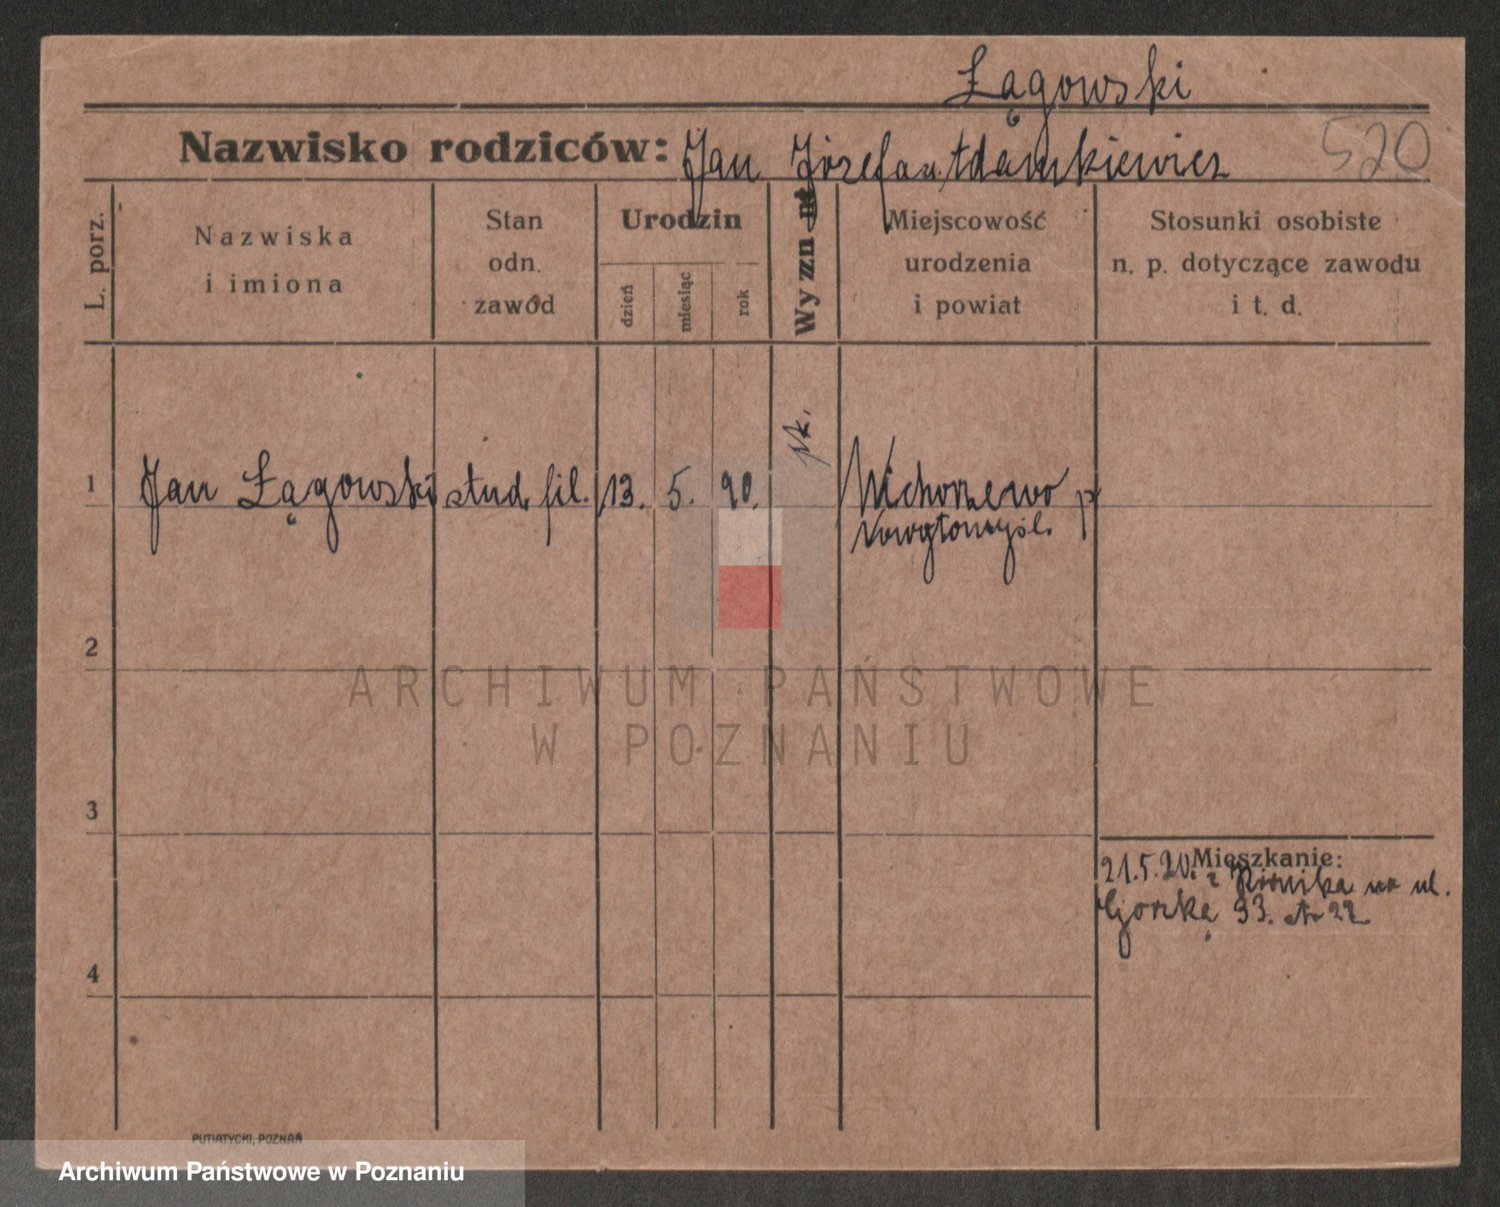 Łągowski
520
Nazwisko rodziców: Jan Józefa u. Adamkiewicz
L. porz.
Nazwiska
i imiona
Stan
odn.
zawód
Urodzin
dzień
miesiąc
rok
Wyzn
Miejscowość
urodzenia
i powiat
Stosunki osobiste
n. p. dotyczące zawodu
i t. d.
1 Jan Łągowski stud. fil. 13. 5. 90. kt. Wichorzewo p
Nowytomyśl.
2
ARCHIWUM PAŃSTWOWE
W POZNANIU
3
Mieszkanie:
21.5.20. z Kórnika na ul.
Górską 33.
4
PUTIATYCKI, POZNAŃ
Archiwum Państwowe w Poznaniu